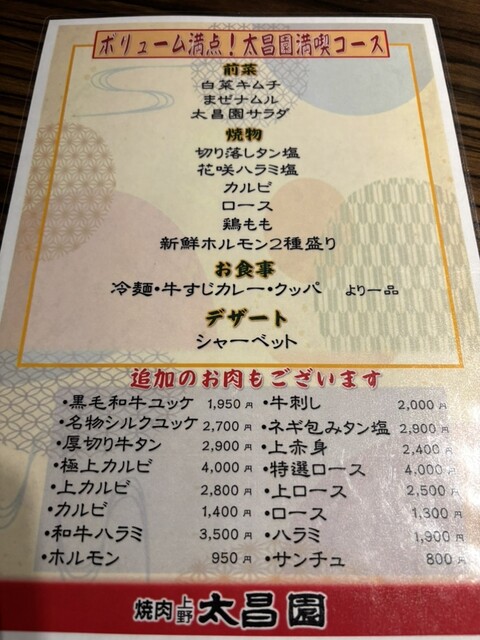 ボリューム満点！太昌園満喫コース
前菜
白菜キムチ
まぜナムル
太昌園サラダ
焼物
切り落しタン塩
花咲ハラミ塩
カルビ
ロース
鶏もも
新鮮ホルモン2種盛り
お食事
冷麺・牛すじカレー・クッパ より一品
デザート
シャーベット
追加のお肉もございます
・黒毛和牛ユッケ 1,950円
・名物シルクユッケ 2,700円
・厚切り牛タン 2,900円
・極上カルビ 4,000円
・上カルビ 2,800円
・カルビ 1,400円
・和牛ハラミ 3,500円
・ホルモン 950円
・牛刺し 2,000円
・ネギ包みタン塩 2,900円
・上赤身 2,400円
・特選ロース 4,000円
・上ロース 2,500円
・ロース 1,300円
・ハラミ 1,900円
・サンチュ 800円
焼肉 上野 太昌園